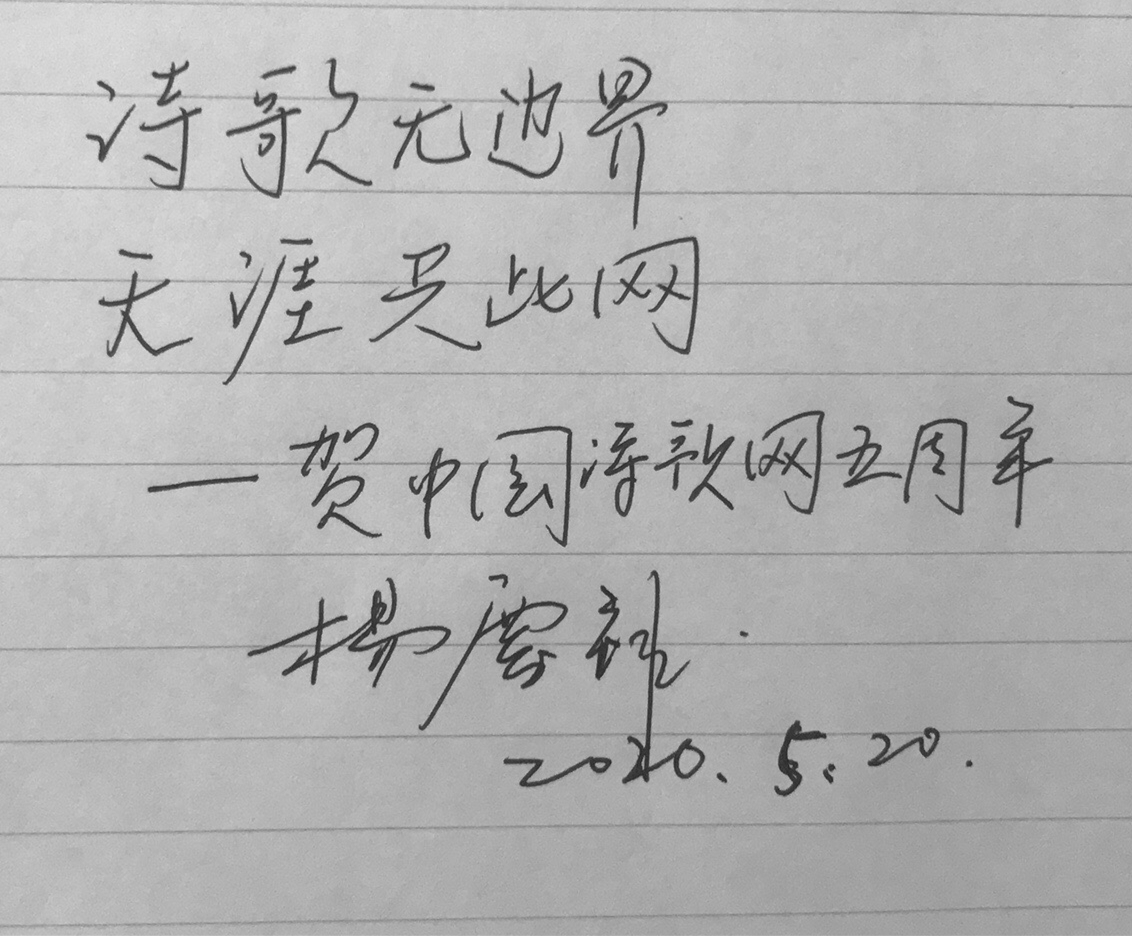 诗歌无边界
天涯只此网
—贺中国诗歌网五周年
楊
2020.5.20.